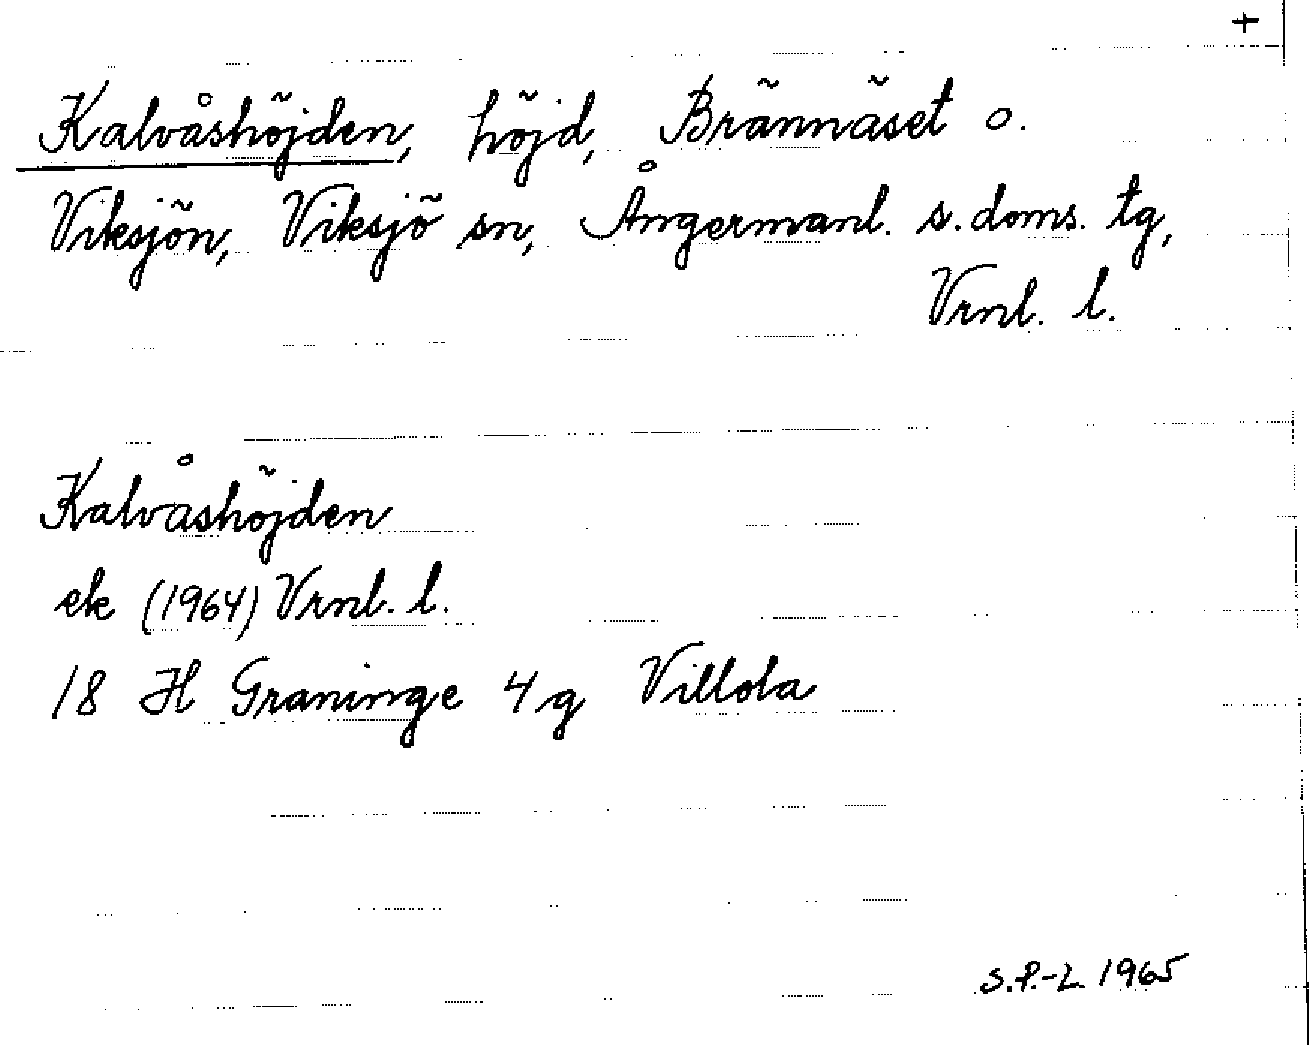 +
Kalvåshöjden, höjd, Brännäset o.
Viksjön, Viksjö sn, Ångermanl. s. doms. tg,
Vrnl. l.
Kalvåshöjden
ek (1964) Vrnl. l.
18 H Graninge 4 g Villola
S.P.-L 1965